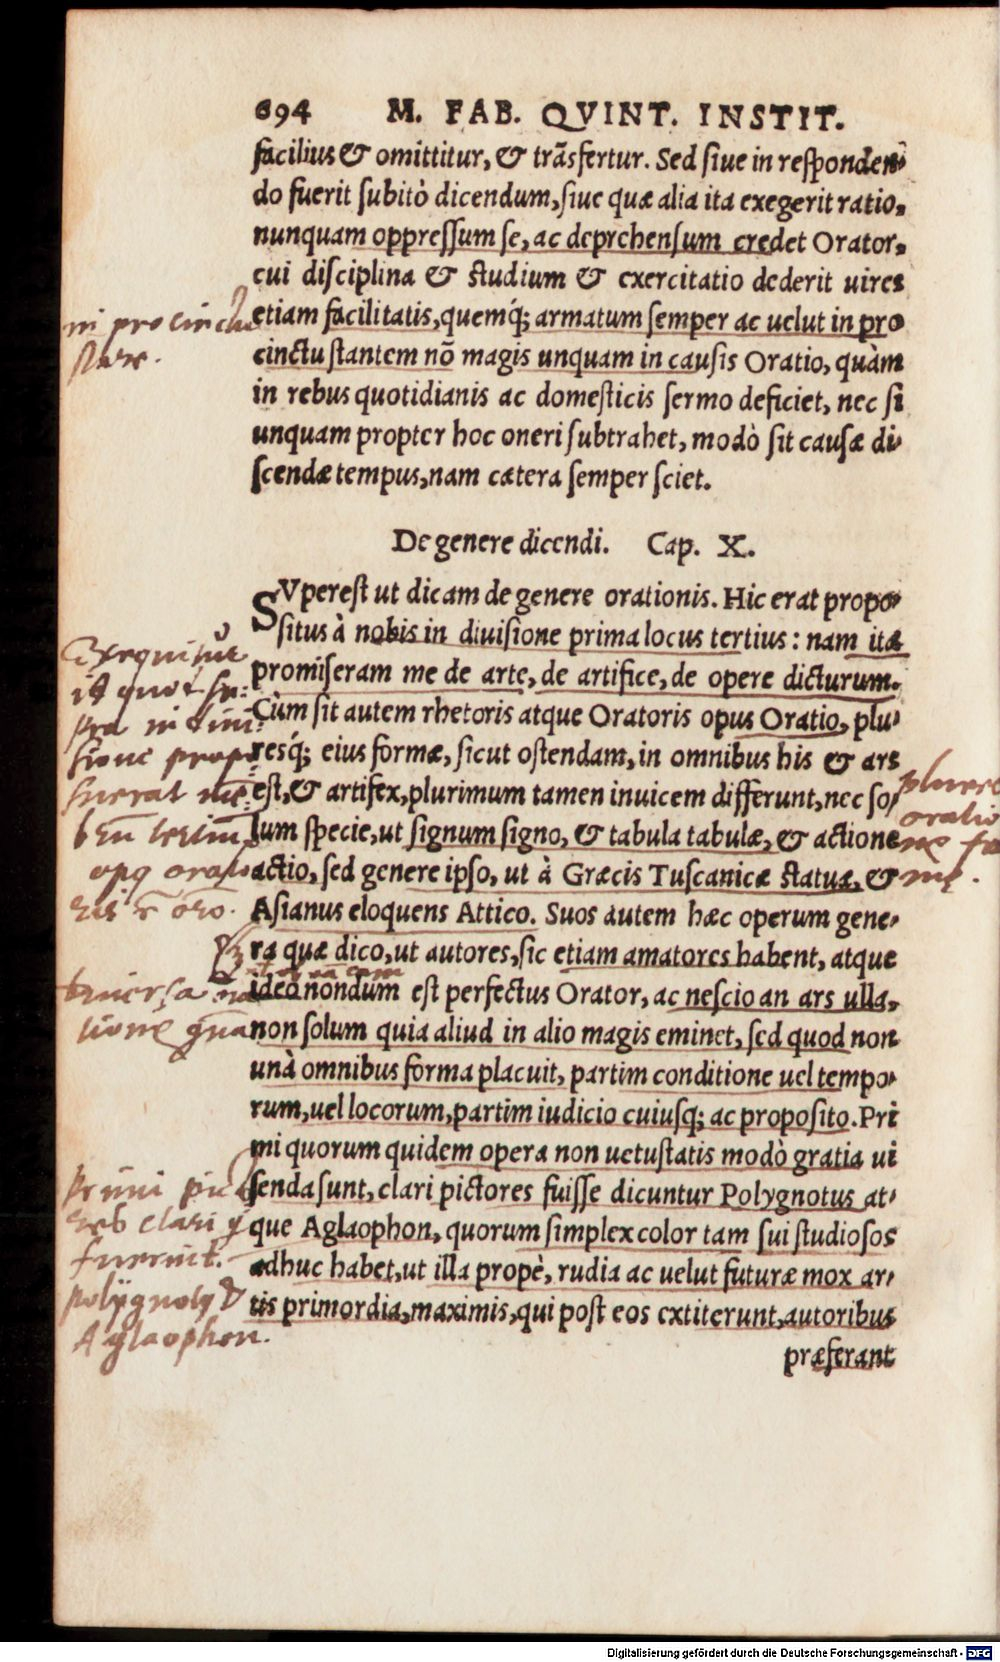 694 M. FAB. QVINT. INSTIT.
facilius & omittitur, & trãsfertur. Sed siue in responden-
do fuerit subitò dicendum, siue quæ alia ita exegerit ratio,
nunquam oppressum se, ac deprehensum credet Orator,
cui disciplina & studium & exercitatio dederit uires
etiam facilitatis, quemq́; armatum semper ac uelut in pro
cinctu stantem nõ magis unquam in causis Oratio, quàm
in rebus quotidianis ac domesticis sermo deficiet, nec si
unquam propter hoc oneri subtrahet, modò sit causæ di-
scendæ tempus, nam cætera semper sciet.
in procinctu
stare.
De genere dicendi. Cap. X.
SVperest ut dicam de genere orationis. Hic erat propo-
situs à nobis in diuisione prima locus tertius: nam ita
promiseram me de arte, de artifice, de opere dicturum.
Cùm sit autem rhetoris atque Oratoris opus Oratio, plu-
resq́; eius formæ, sicut ostendam, in omnibus his & ars
est, & artifex, plurimum tamen inuicem differunt, nec so-
lum specie, ut signum signo, & tabula tabulæ, & actione
actio, sed genere ipso, ut à Græcis Tuscanicæ statuæ, &
Asianus eloquens Attico. Suos autem hæc operum gene-
ra quæ dico, ut autores, sic etiam amatores habent, atque
ideo nondum est perfectus Orator, ac nescio an ars ulla,
non solum quia aliud in alio magis eminet, sed quod non
unà omnibus forma placuit, partim conditione uel tempo-
rum, uel locorum, partim iudicio cuiusq; ac proposito. Pri
mi quorum quidem opera non uetustatis modò gratia ui
senda sunt, clari pictores fuisse dicuntur Polygnotus at-
que Aglaophon, quorum simplex color tam sui studiosos
adhuc habet, ut illa propè, rudia ac uelut futuræ mox ar-
tis primordia, maximis, qui post eos extiterunt, autoribus
præferant
Exequitur
id quod su-
pra in diui-
sione propo
suerat
opq orato
ris
plures
oratio
Primi pic
clari
fuerint.
polygnotq &
Aglaophon.
Digitalisierung gefördert durch die Deutsche Forschungsgemeinschaft - DFG